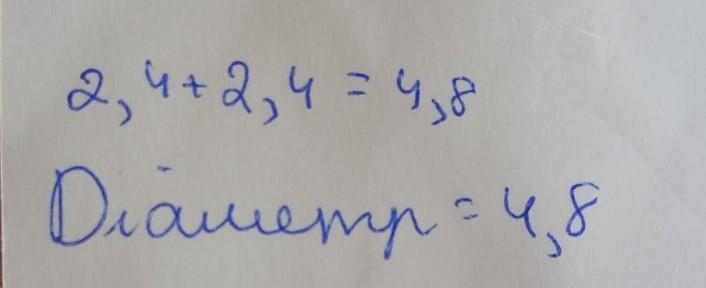 2,4+2,4=4,8
Діаметр=4,8